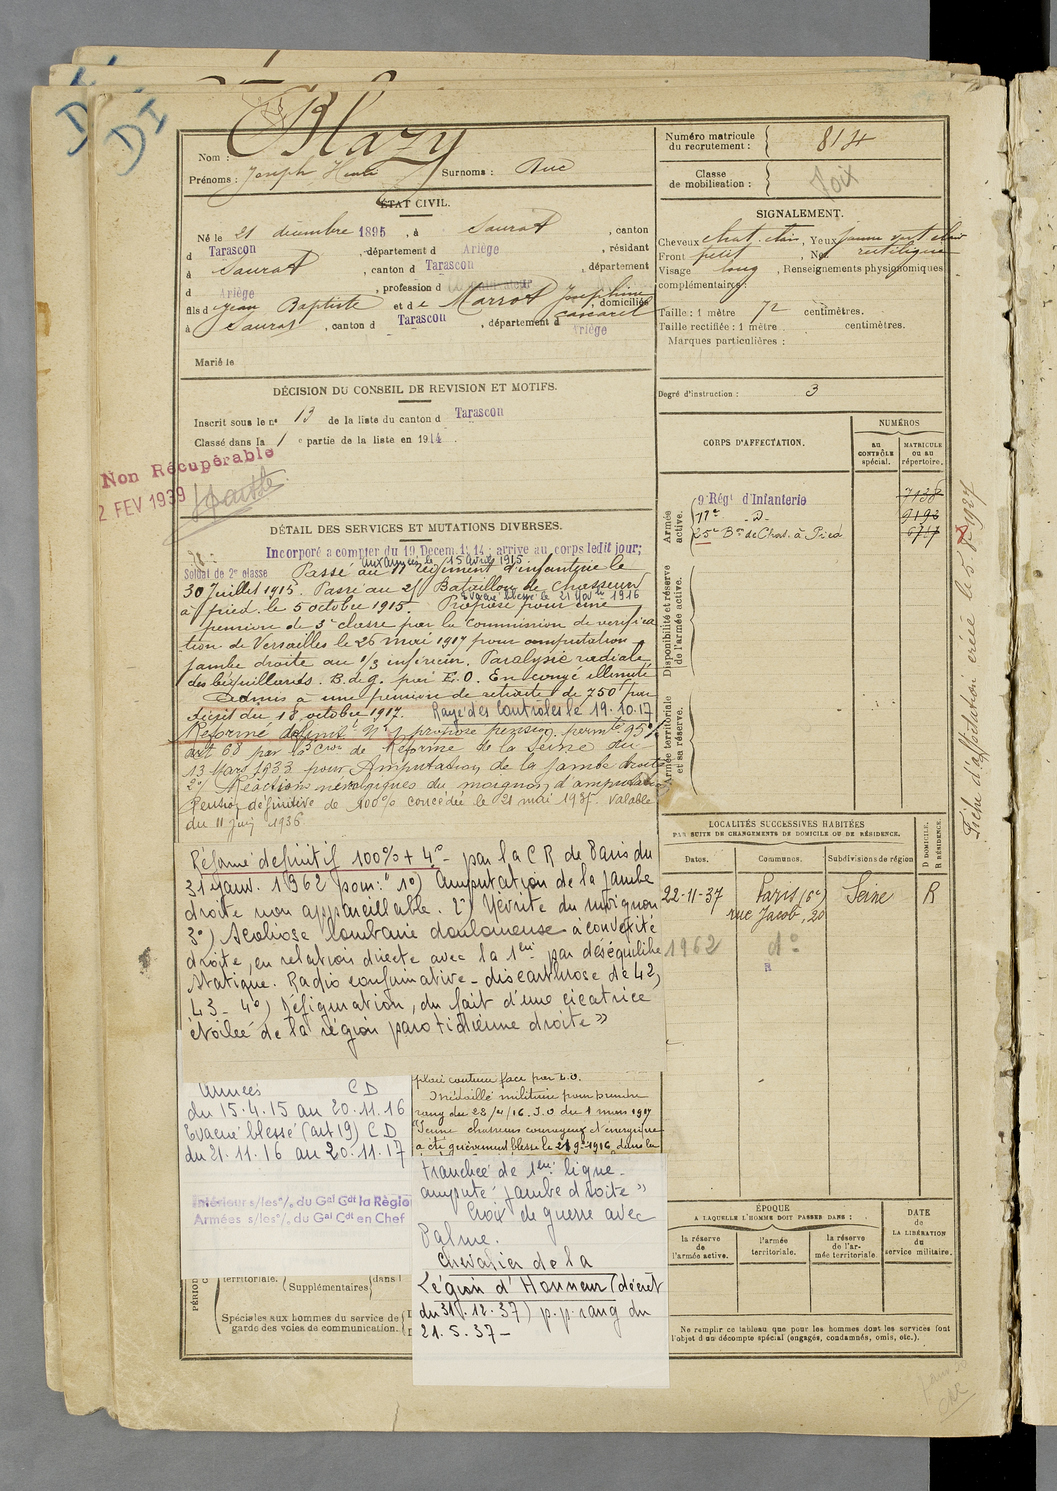 DI
Nom : Blazy
Prénoms : Joseph Henri Surnoms : Buc
Numéro matricule du recrutement : 814
Classe de mobilisation :
Foix
ÉTAT CIVIL.
Né le 21 décembre 1895, à Saurat, canton
d Tarascon, département d Ariège, résidant
à Saurat, canton d Tarascon, département
d Ariège, profession d
fils d Jean Baptiste et de Marrot Joséphine
, domiciliés
à Saurat, canton d Tarascon, département d Ariège
Marié le
SIGNALEMENT.
Cheveux chat. clair, Yeux jaune vert clair
Front petit, Nez rectiligne
Visage long, Renseignements physiognomiques
complémentaires :
Taille : 1 mètre 72 centimètres.
Taille rectifiée : 1 mètre centimètres.
Marques particulières :
Degré d'instruction : 3
DÉCISION DU CONSEIL DE REVISION ET MOTIFS.
Inscrit sous le n° 13 de la liste du canton d Tarascon
Classé dans la 1 e partie de la liste en 1914.
Non Récupérable
2 FEV 1939
CORPS D'AFFECTATION.
NUMÉROS
au CONTRÔLE spécial.
MATRICULE ou au répertoire.
Armée active.
9e Régt d'Infanterie 7138
11e -D- 9193
25e Bon de Chas. à Pied 6717
Disponibilité et réserve de l'armée active.
Armée territoriale et sa réserve.
Fiche d'affectation créée le 5 1927
DÉTAIL DES SERVICES ET MUTATIONS DIVERSES.
Incorporé à compter du 19 Decem. 1914; arrivé au corps ledit jour;
aux armées le 15 avril 1915
Soldat de 2e classe Passé au 11 régiment d'infanterie le
30 Juillet 1915. Passé au 25 Bataillon de Chasseurs
évacué blessé le 21 Novbre 1916
à pied le 5 octobre 1915. Proposé pour une
pension de 3e classe par la Commission de vérifica
tion de Versailles le 26 mai 1917 pour amputation
jambe droite au 1/3 inférieur. Paralysie radiale
des béquillards. B. de g. par E.O. En congé illimité
Admis à une pension de retraite de 750f par
décret du 18 octobre 1917. Rayé des Contrôles le 19.10.17
Réformé défint N°1 proposé pension permte 95%
art 68 par la 3e Cion de Réforme de la Seine du
13 Mars 1933 pour Amputation de la jambe droite
2°) Réactions névralgiques du moignon d'amputation
Pension définitive de 100% concédée le 21 mai 1935. Valable
du 11 Juin 1936
Réformé définitif 100% + 4° - par la C R de Paris du
31 janv. 1962 pour : "1°) Amputation de la jambe
droite non appareillable. 2°) Névrite du moignon
3°) Scoliose lombaire douloureuse à convexité
droite, en relation directe avec la 1ère par déséquilibre
statique. Radio confirmative - discarthrose de 42,
43 - 4°) Défiguration, du fait d'une cicatrice
étoilée de la région parotidienne droite"
LOCALITÉS SUCCESSIVES HABITÉES
PAR SUITE DE CHANGEMENTS DE DOMICILE OU DE RÉSIDENCE.
Dates. Communes. Subdivisions de région D DOMICILE. R RÉSIDENCE.
22-11-37 Paris (6e) Seine R
rue Jacob, 20
1962 do
R
Armées C D
du 15.4.15 au 20.11.16
Evacué blessé (art 19) C D
du 21.11.16 au 20.11.17
Intérieur s/les°/. du Gal Cdt la Région
Armées s/les°/. du Gal Cdt en Chef
plaie contuse face par E.O.
Médaillé militaire pour prendre
rang du 28/4/16. J.O du 1 mars 1917
"Jeune chasseur courageux et énergique
a été grièvement blessé le 21 9bre 1916 dans la
tranchée de 1ère ligne -
amputé jambe droite"
Croix de guerre avec
Palme.
Chevalier de la
Légion d'Honneur (décret
du 31.12.37) p.p. rang du
21.5.37 -
PÉRIOD
territoriale. (Supplémentaires) dans l
Spéciales aux hommes du service de
garde des voies de communication.
ÉPOQUE
A LAQUELLE L'HOMME DOIT PASSER DANS :
la réserve de l'armée active.
l'armée territoriale.
la réserve de l'armée territoriale
DATE de LA LIBÉRATION du service militaire.
Ne remplir ce tableau que pour les hommes dont les services font
l'objet d'un décompte spécial (engagés, condamnés, omis, etc.).